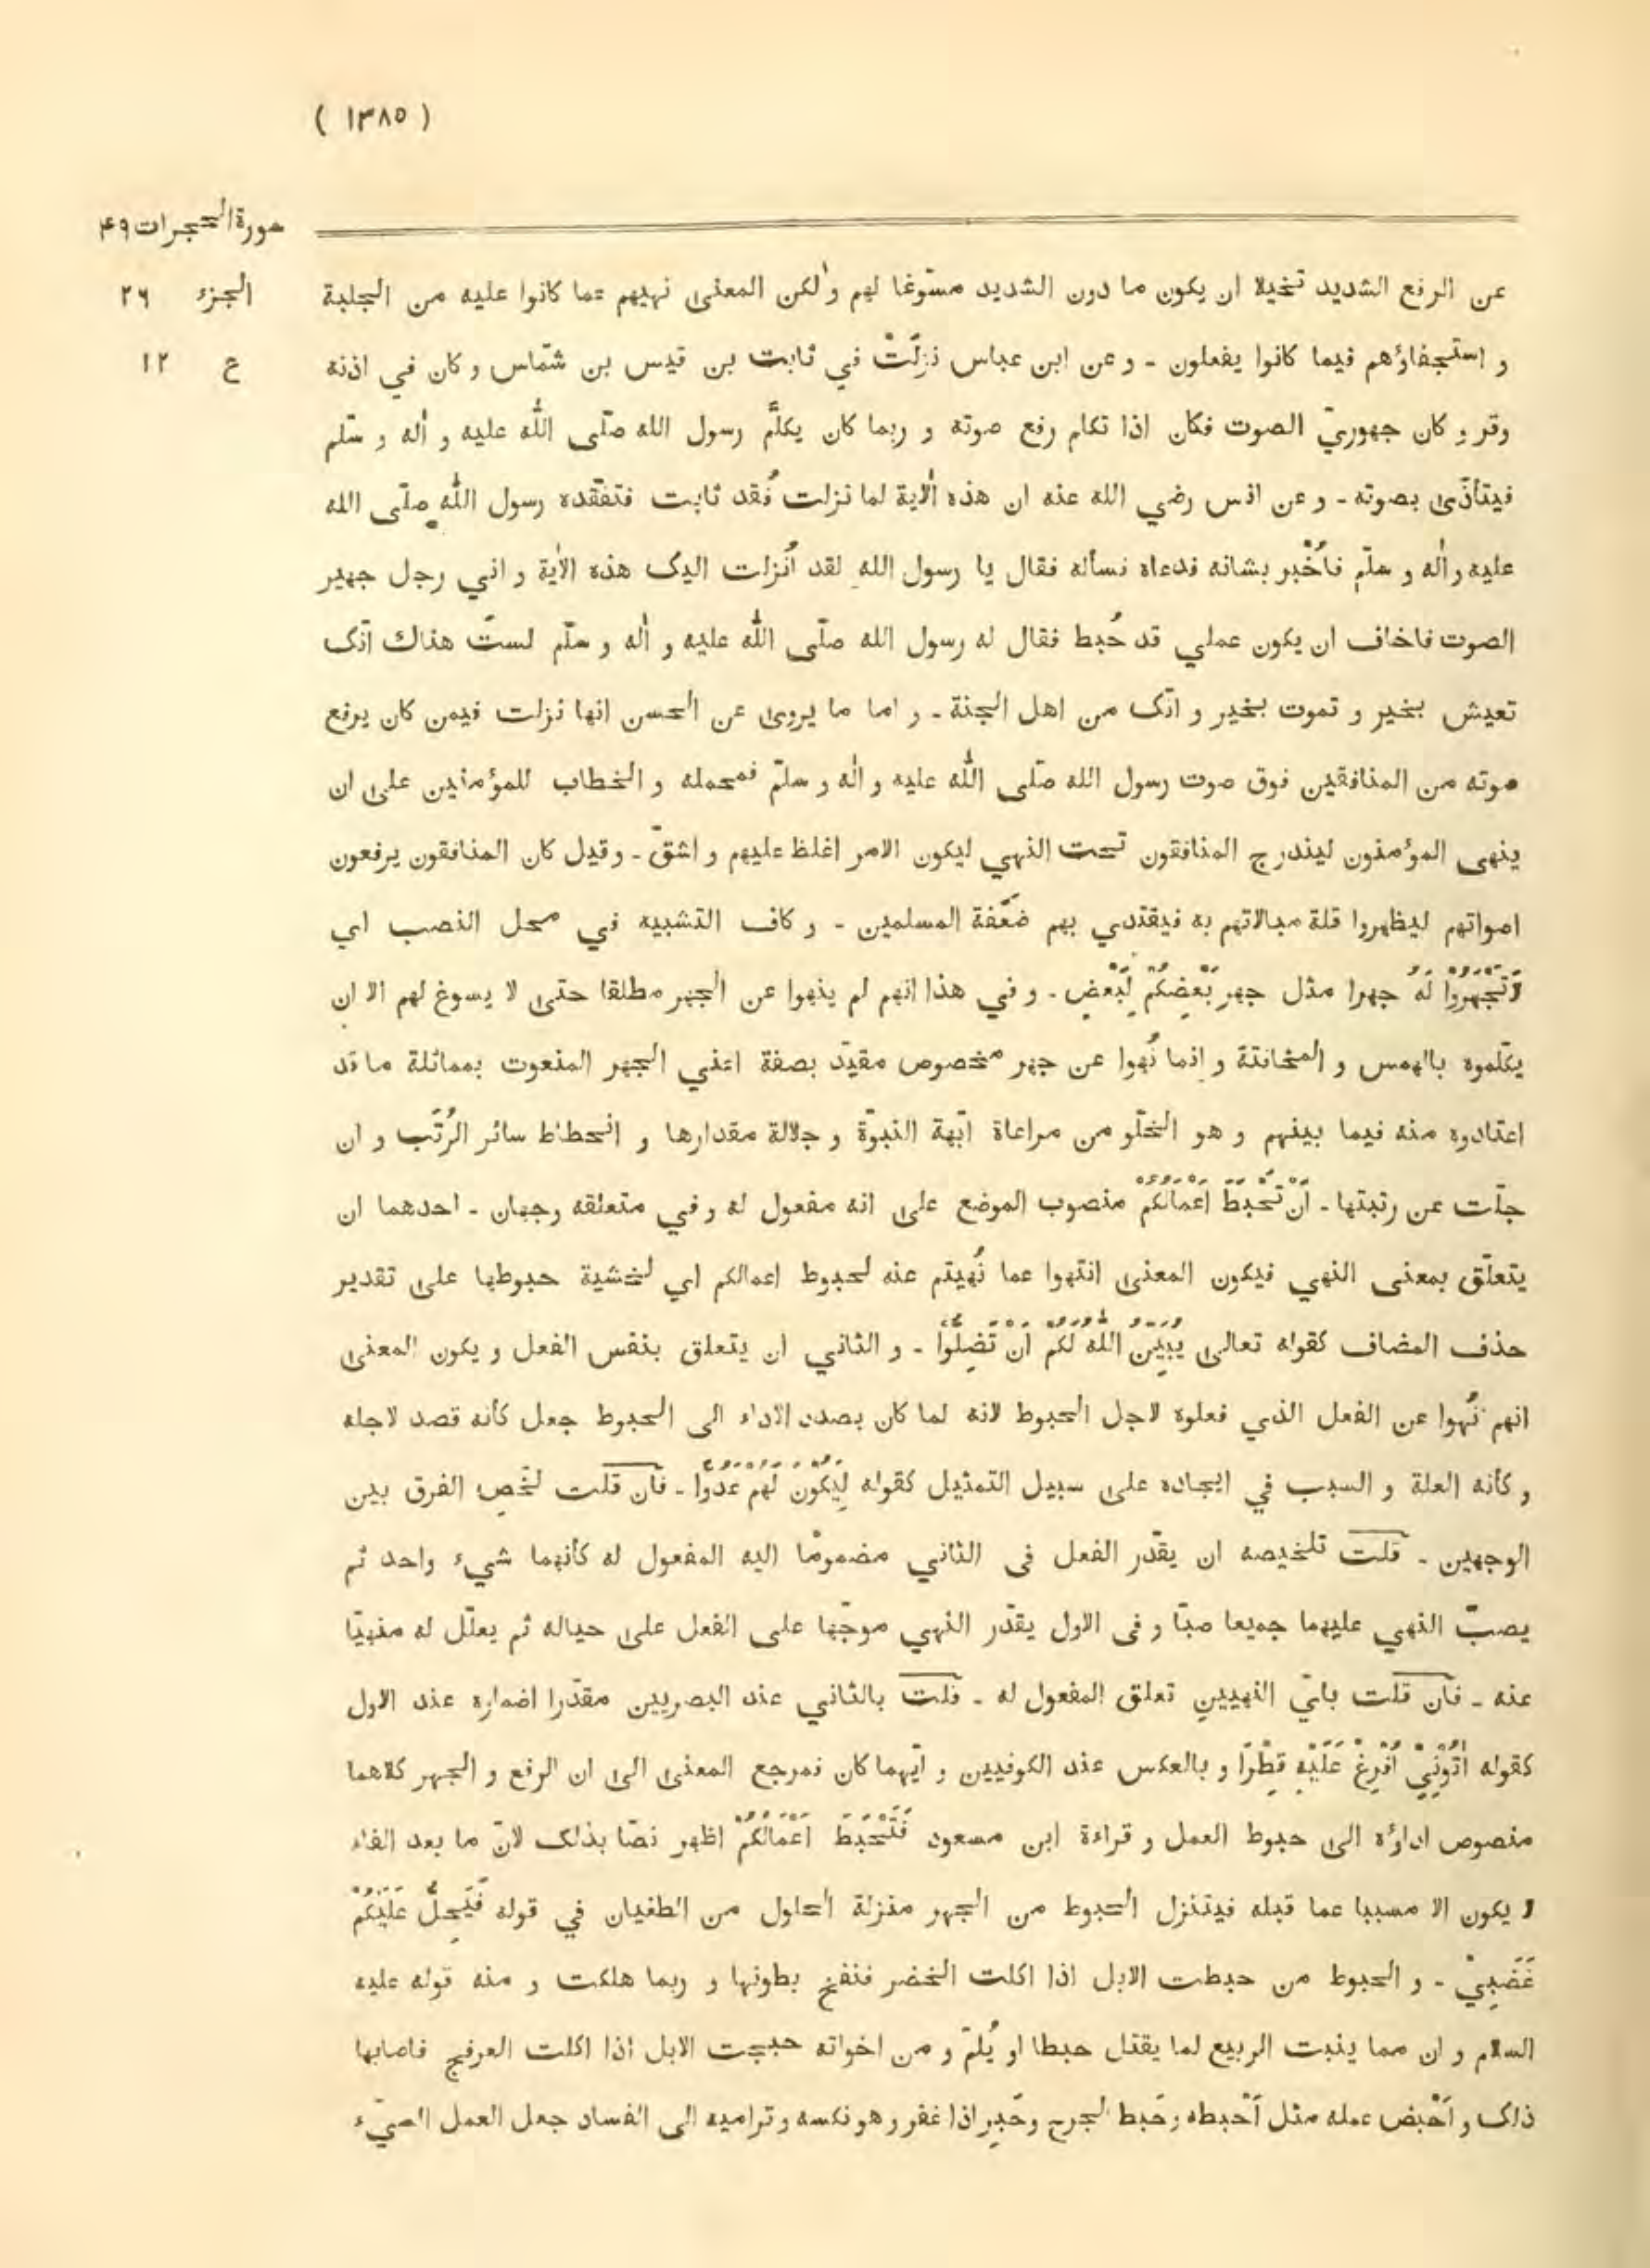 ( ١٣٨٥ )
سورة الحجرات ٤٩
الجزء ٢٦
ع ١٢
عن الرفع الشديد تخيلا ان يكون ما دون الشديد مسوّغا لهم ولٰكن المعنى نهيهم عما كانوا عليه من الجلبة
و استجفاؤهم فيما كانوا يفعلون - و عن ابن عباس نزلَتْ في ثابت بن قيس بن شمّاس و كان في اذنه
وقر و كان جهوريّ الصوت فكان اذا تكلم رفع صوته و ربما كان يكلّم رسول الله صلّى اللّٰه عليه و اٰله و سلّم
فيتأذّى بصوته - و عن انس رضي الله عنه ان هذه الاٰية لما نزلت فُقد ثابت فتفقّده رسول اللّٰه صلّى الله
عليه و اٰله و سلّم فأُخْبر بشانه فدعاه فسأله فقال يا رسول الله لقد اُنزلت اليك هذه الاٰية و اني رجل جهير
الصوت فاخاف ان يكون عملي قد حُبط فقال له رسول الله صلّى اللّٰه عليه و اٰله و سلّم لستَ هناك انّك
تعيش بخير و تموت بخير و انّك من اهل الجنة - و اما ما يروى عن الحسن انها نزلت فيمن كان يرفع
صوته من المنافقين فوق صوت رسول الله صلّى اللّٰه عليه و اٰله و سلّم فمحمله و الخطاب للمؤمنين على ان
ينهى المؤمنون ليندرج المنافقون تحت النهي ليكون الامر اغلظ عليهم و اشقّ - وقيل كان المنافقون يرفعون
اصواتهم ليظهروا قلة مبالاتهم به فيقتدي بهم ضَعَفة المسلمين - و كاف التشبيه في محل النصب اي
لَا تَجْهَرُوْا لَهُ جهرا مثل جهر بَعْضِكُمْ لِبَعْضٍ - و في هذا انهم لم ينهوا عن الجهر مطلقا حتى لا يسوغ لهم الا ان
يكلّموه بالهمس و المخافتة و انما نُهوا عن جهر مخصوص مقيّد بصفة اعني الجهر المنعوت بمماثلة ما قد
اعتادوه منه فيما بينهم و هو الخلّو من مراعاة ابّهة النبوّة و جلالة مقدارها و انحطاط سائر الرُتَب و ان
جلّت عن رتبتها - اَنْ تَحْبَطَ اَعْمَالُكُمْ منصوب الموضع على انه مفعول له و في متعلقه وجهان - احدهما ان
يتعلّق بمعنى النهي فيكون المعنى انتهوا عما نُهيتم عنه لحبوط اعمالكم اي لخشية حبوطها على تقدير
حذف المضاف كقوله تعالى يُبَيِّنُ اللّٰهُ لَكُمْ اَنْ تَضِلُّوْا - و الثاني ان يتعلق بنفس الفعل و يكون المعنى
انهم نُهوا عن الفعل الذي فعلوه لاجل الحبوط لانه لما كان بصدد الاداء الى الحبوط جعل كأنه قصد لاجله
و كأنه العلة و السبب في ايجاده على سبيل التمثيل كقوله لِيَكُوْنَ لَهُمْ عَدُوًّا - فان قلت لخّصِ الفرق بين
الوجهين - قلت تلخيصه ان يقدّر الفعل في الثاني مضموما اليه المفعول له كأنهما شيء واحد ثم
يصبّ النهي عليهما جميعا صبّا و في الاول يقدّر النهي موجّها على الفعل على حياله ثم يعلّل له منهيّا
عنه - فان قلت بايّ النهيينِ تعلق المفعول له - قلت بالثاني عند البصريين مقدّرا اضماره عند الاول
كقوله اٰتُوْنِيْ اُفْرِغْ عَلَيْهِ قِطْرًا و بالعكس عند الكوفيين و ايّهما كان فمرجع المعنى الى ان الرفع و الجهر كلاهما
منصوص اداؤه الى حبوط العمل و قراءة ابن مسعود فَتَحْبَطَ اَعْمَالُكُمْ اظهر نصّا بذلك لانّ ما بعد الفاء
لا يكون الا مسببا عما قبله فيتنزل الحبوط من الجهر منزلة الحلول من الطغيان في قوله فَيَحِلَّ عَلَيْكُمْ
غَضَبِيْ - و الحبوط من حبطت الابل اذا اكلت الخضر فنفخ بطونها و ربما هلكت و منه قوله عليه
السلام و ان مما ينبت الربيع لما يقتل حبطا او يُلمّ و من اخواته حبجت الابل اذا اكلت العرفج فاصابها
ذلك و اَحْبض عمله مثل اَحْبطه و حَبط الجرح و حَبِر اذا غفر و هو نكسه و تراميه الى الفساد جعل العمل السيّء